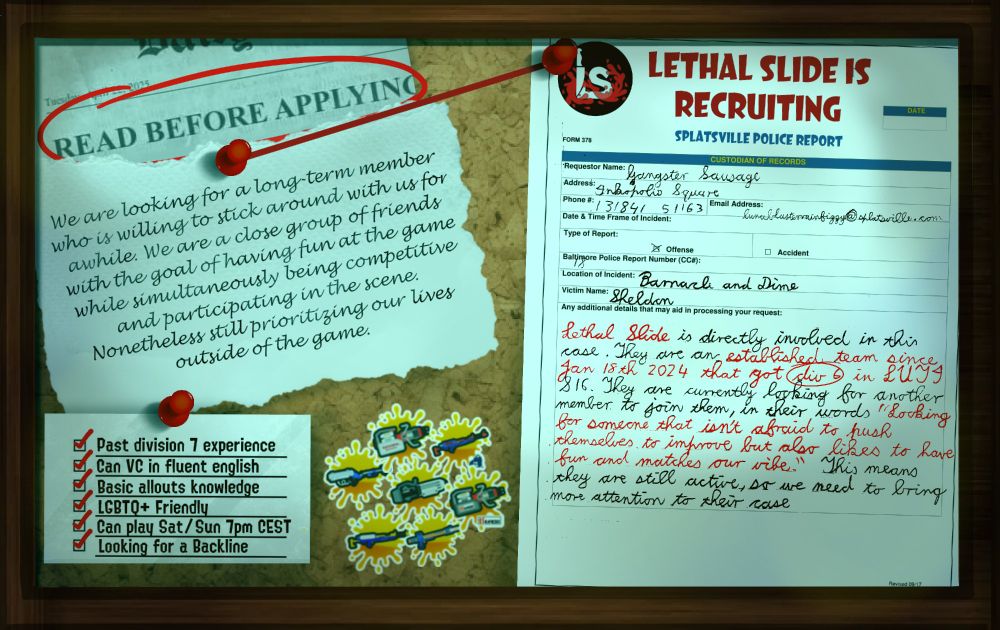 Daily
Tuesday, April 22, 2025
READ BEFORE APPLYING
We are looking for a long-term member
who is willing to stick around with us for
awhile. We are a close group of friends
with the goal of having fun at the game
while simultaneously being competitive
and participating in the scene.
Nonetheless still prioritizing our lives
outside of the game.
Past division 7 experience
Can VC in fluent english
Basic allouts knowledge
LGBTQ+ Friendly
Can play Sat/Sun 7pm CEST
Looking for a Backline
LS
LETHAL SLIDE IS
RECRUITING
SPLATSVILLE POLICE REPORT
DATE
FORM 378
CUSTODIAN OF RECORDS
Requestor Name: Gangster Sausage
Address: Inkopolis Square
Phone #: 131841 51163 Email Address:
Date & Time Frame of Incident: @splatsville.com
Type of Report:
Offense Accident
Baltimore Police Report Number (CC#):
18
Location of Incident: Barnacle and Dime
Victim Name: Sheldon
Any additional details that may aid in processing your request:
Lethal Slide is directly involved in this
case. They are an established team since
Jan 18th 2024 that got div 6 in LUTI
S16. They are currently looking for another
member to join them, in their words "Looking
for someone that isn't afraid to push
themselves to improve but also likes to have
fun and matches our vibe." This means
they are still active, so we need to bring
more attention to their case
Revised 09/17